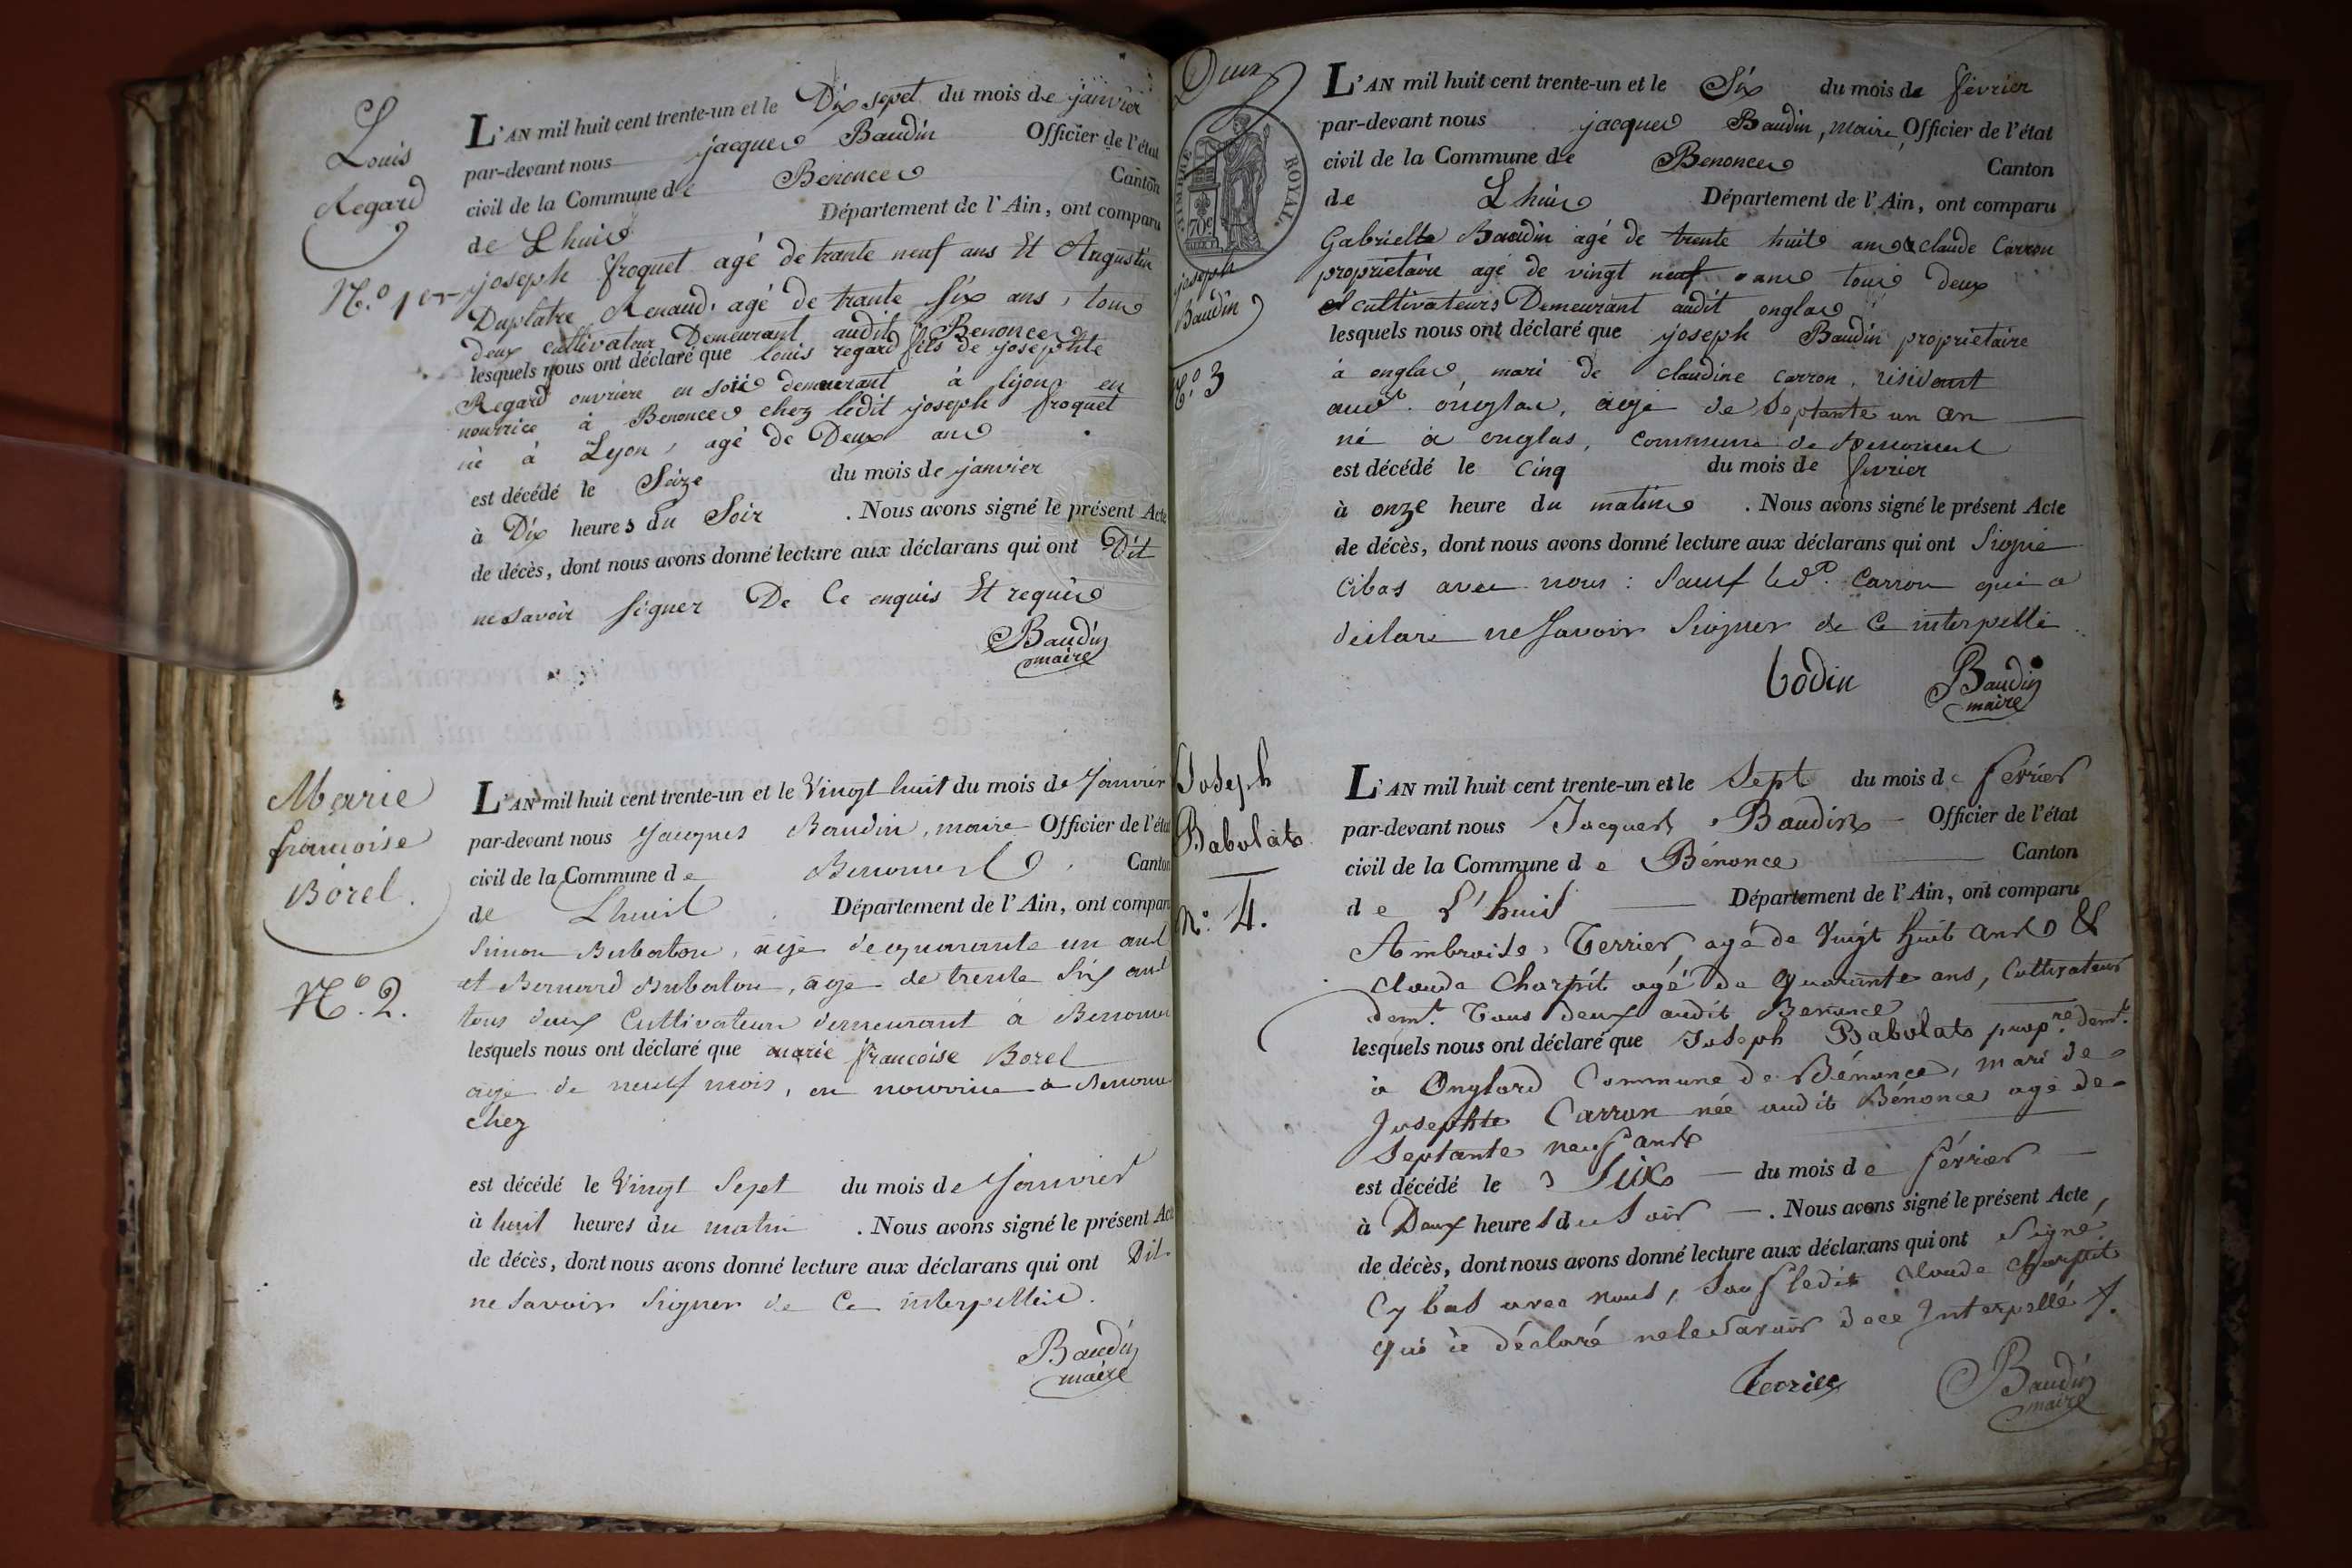 Louis
Regard
N.º 1er
L'AN mil huit cent trente-un et le Dix sept du mois de janvier
par-devant nous jacques Baudin Officier de l'état
civil de la Commune de Benonces Canton
de Lhuis Département de l'Ain, ont comparu
joseph froquet agé de trante neuf ans Et Augustin
Duplatre Renaud agé de trante six ans, tous
deux cultivateur Demeurant audit Benonces
lesquels nous ont déclaré que louis regard fils de josephte
Regard ouvriere en soie demeurant à lijon en
nourrice à Benonces chez ledit joseph froquet
né à Lyon, agé de Deux ans
est décédé le Seize du mois de janvier
à Dix heures du Soir . Nous avons signé le présent Acte
de décès, dont nous avons donné lecture aux déclarans qui ont Dit
ne savoir signer De Ce enquis Et requis
Baudin
maire
Marie
francoise
Borel.
N.º 2.
L'AN mil huit cent trente-un et le Vingt huit du mois de Janvier
par-devant nous Jacques Baudin, maire Officier de l'état
civil de la Commune de Benonces Canton
de Lhuis Département de l'Ain, ont comparu
Simon Bubaton, agé de quarante un ans
et Bernard Bubaton, agé de trente Six ans
tous deux Cultivateurs demeurant à Benonces
lesquels nous ont déclaré que marie francoise Borel
agé de neuf mois, en nourrice à Benonces
chez
est décédé le Vingt Sept du mois de Janvier
à huit heures du matin . Nous avons signé le présent Acte
de décès, dont nous avons donné lecture aux déclarans qui ont Dit
ne Savoir Signer de Ce interpellés.
Baudin
maire
Deux
TIMBRE ROYAL
70c
joseph
Baudin
N.º 3
L'AN mil huit cent trente-un et le Six du mois de fevrier
par-devant nous jacques Baudin, maire, Officier de l'état
civil de la Commune de Benonces Canton
de Lhuis Département de l'Ain, ont comparu
Gabrielle Baudin agé de trente huit ans & claude Carron
proprietaire agé de vingt neuf ans tous deux
et cultivateurs Demeurant audit onglas
lesquels nous ont déclaré que joseph Baudin proprietaire
à onglas, mari de claudine carron, résidant
aud.t onglas, agé de Septante un an
né à onglas, commune de Benonces
est décédé le Cinq du mois de fevrier
à onze heure du matin . Nous avons signé le présent Acte
de décès, dont nous avons donné lecture aux déclarans qui ont Signé
cibas avec nous : Sauf led.t Carron qui a
déclaré ne Savoir Signer de Ce interpellé
bodin Baudin
maire
Joseph
Babolats
N.º 4.
L'AN mil huit cent trente-un et le Sept du mois de février
par-devant nous Jacques Baudin Officier de l'état
civil de la Commune de Bénonce Canton
de L'huis Département de l'Ain, ont comparu
Ambroise Terrier, agé de Vingt huit ans &
Claude Charpit agé de Quarante ans, Cultivateurs
demt. Tous deux audit Benonce
lesquels nous ont déclaré que Joseph Babolats propre. demt.
à Onglard Commune de Bénonce, mari de
Josephte Carron née audit Bénonce agé de
Septante neuf ans
est décédé le Six du mois de février
à Deux heures du Soir . Nous avons signé le présent Acte
de décès, dont nous avons donné lecture aux déclarans qui ont Signé
Cy bas avec nous, Sauf ledit Claude Charpit
Qui à déclaré ne le Savoir de ce Interpellé
Terrier Baudin
maire